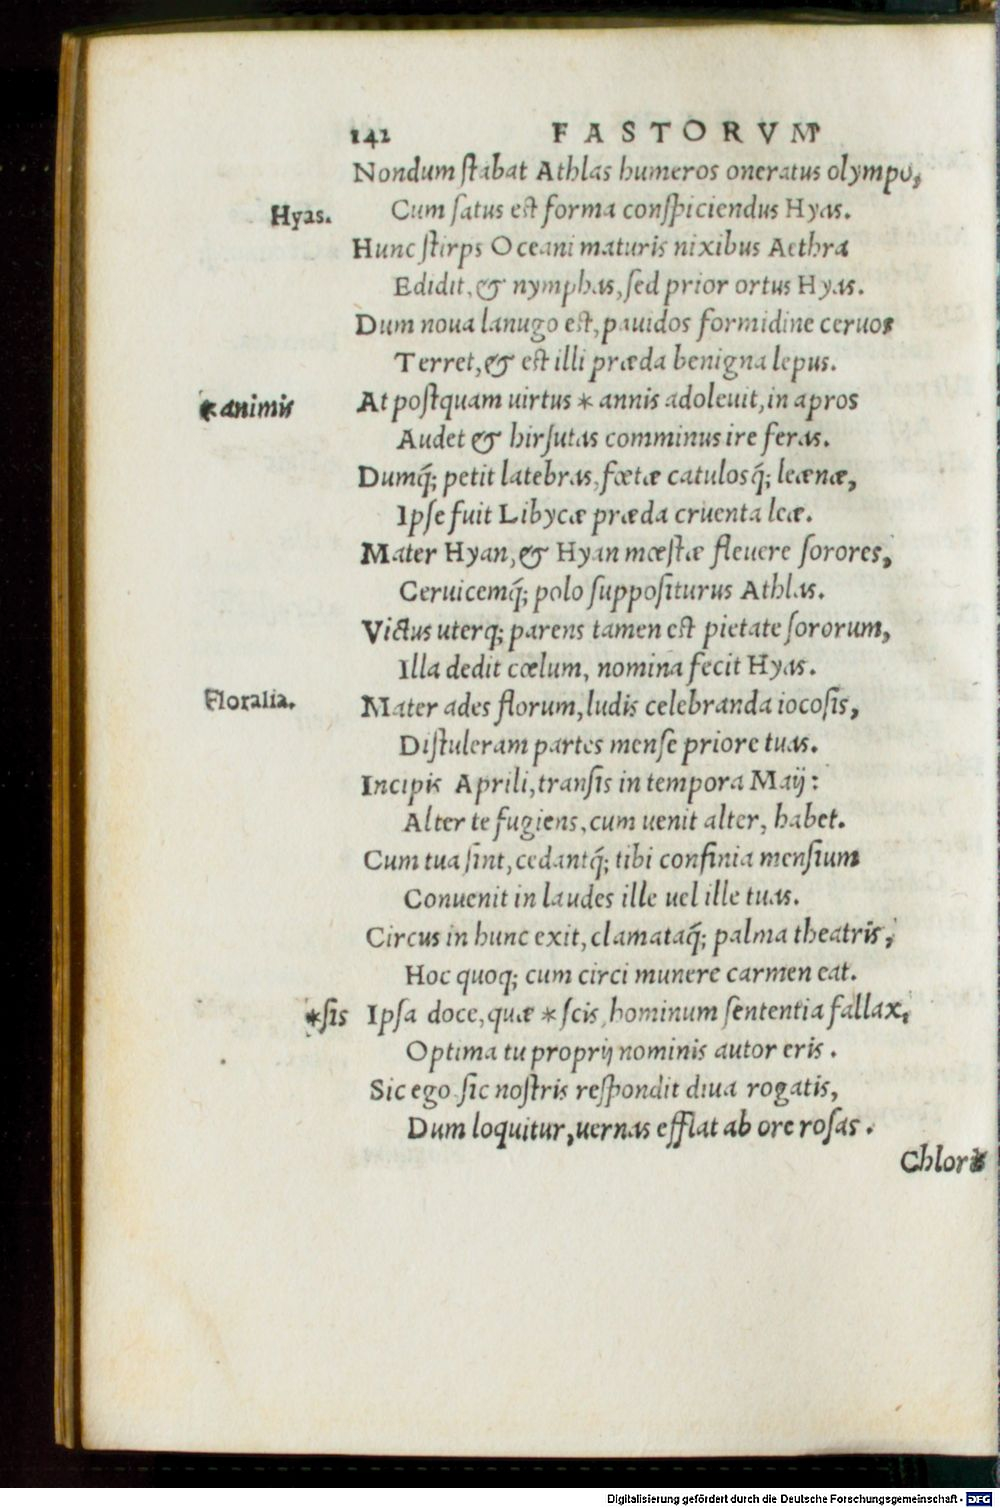 142 FASTORVM
Nondum stabat Athlas humeros oneratus olympo,
Hyas. Cum satus est forma conspiciendus Hyas.
Hunc stirps Oceani maturis nixibus Aethra
Edidit, & nymphas, sed prior ortus Hyas.
Dum noua lanugo est, pauidos formidine ceruos
Terret, & est illi præda benigna lepus.
*animis At postquam uirtus * annis adoleuit, in apros
Audet & hirsutas comminus ire feras.
Dumq́; petit latebras, fœtæ catulosq́; leænæ,
Ipse fuit Libycæ præda cruenta leæ.
Mater Hyan, & Hyan mœstæ fleuere sorores,
Ceruicemq́; polo suppositurus Athlas.
Victus uterq; parens tamen est pietate sororum,
Illa dedit cœlum, nomina fecit Hyas.
Floralia. Mater ades florum, ludis celebranda iocosis,
Distuleram partes mense priore tuas.
Incipis Aprili, transis in tempora Maij:
Alter te fugiens, cum uenit alter, habet.
Cum tua sint, cedantq́; tibi confinia mensium
Conuenit in laudes ille uel ille tuas.
Circus in hunc exit, clamataq́; palma theatris,
Hoc quoq; cum circi munere carmen eat.
*sis Ipsa doce, quæ * scis, hominum sententia fallax,
Optima tu proprij nominis autor eris.
Sic ego sic nostris respondit diua rogatis,
Dum loquitur, uernas efflat ab ore rosas.
Chloris
Digitalisierung gefördert durch die Deutsche Forschungsgemeinschaft - DFG